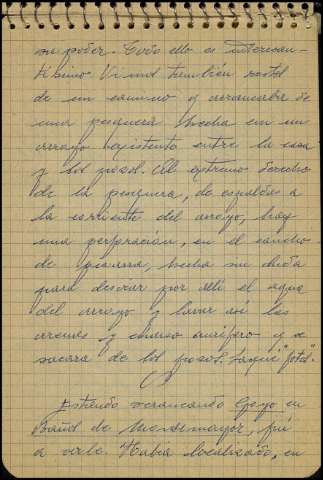 su poder. Todo ello es interesan-
tísimo. Vi und también restos
de un camino y arrancaba de
una pesquera hecha en un
arroyo existente entre la casa
y los pozos. Al extremo derecho
de la pesquera, de espaldas a
la corriente del arroyo, hay
una perforación, en el cancho
de pizarra, hecha sin duda
para desviar por allí el agua
del arroyo y lavar así las
arenas y cuarzo aurífero q se
sacara de los pozos. Saqué "fotos".
Estando veraneando Goyo en
Baños de Montemayor, fuí
a verle. Había localizado, en